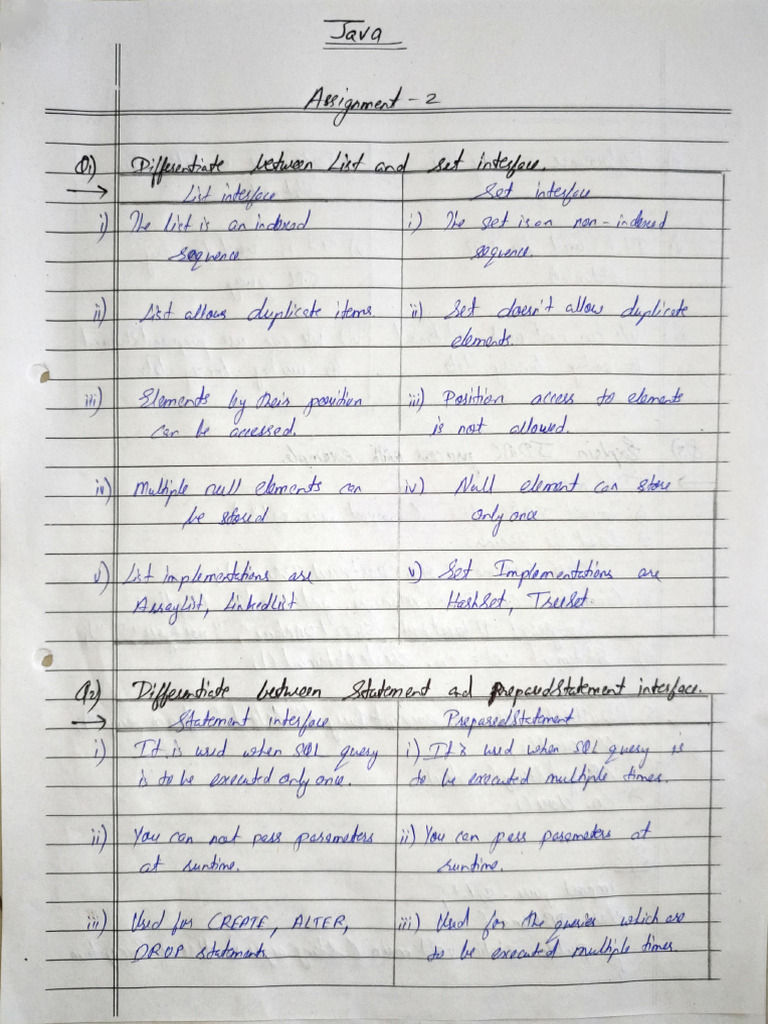 Java
Assignment - 2
Q1) Differentiate between List and set interface.
→ List interface Set interface
i) The list is an indexed i) The set is an non-indexed
sequence sequence.
ii) List allows duplicate items. ii) Set doesn't allow duplicate
elements.
iii) Elements by their position iii) Position access to elements
can be accessed. is not allowed.
iv) Multiple null elements can iv) Null element can store
be stored only once
v) List implementations are v) Set Implementations are
ArrayList, LinkedList HashSet, TreeSet.
Q2) Differentiate between Statement and PreparedStatement interface.
→ Statement interface PreparedStatement
i) It is used when SQL query i) It is used when SQL query is
is to be executed only once. to be executed multiple times.
ii) You can not pass parameters ii) You can pass parameters at
at runtime. runtime.
iii) Used for CREATE, ALTER, iii) Used for the queries which are
DROP statements. to be executed multiple times.